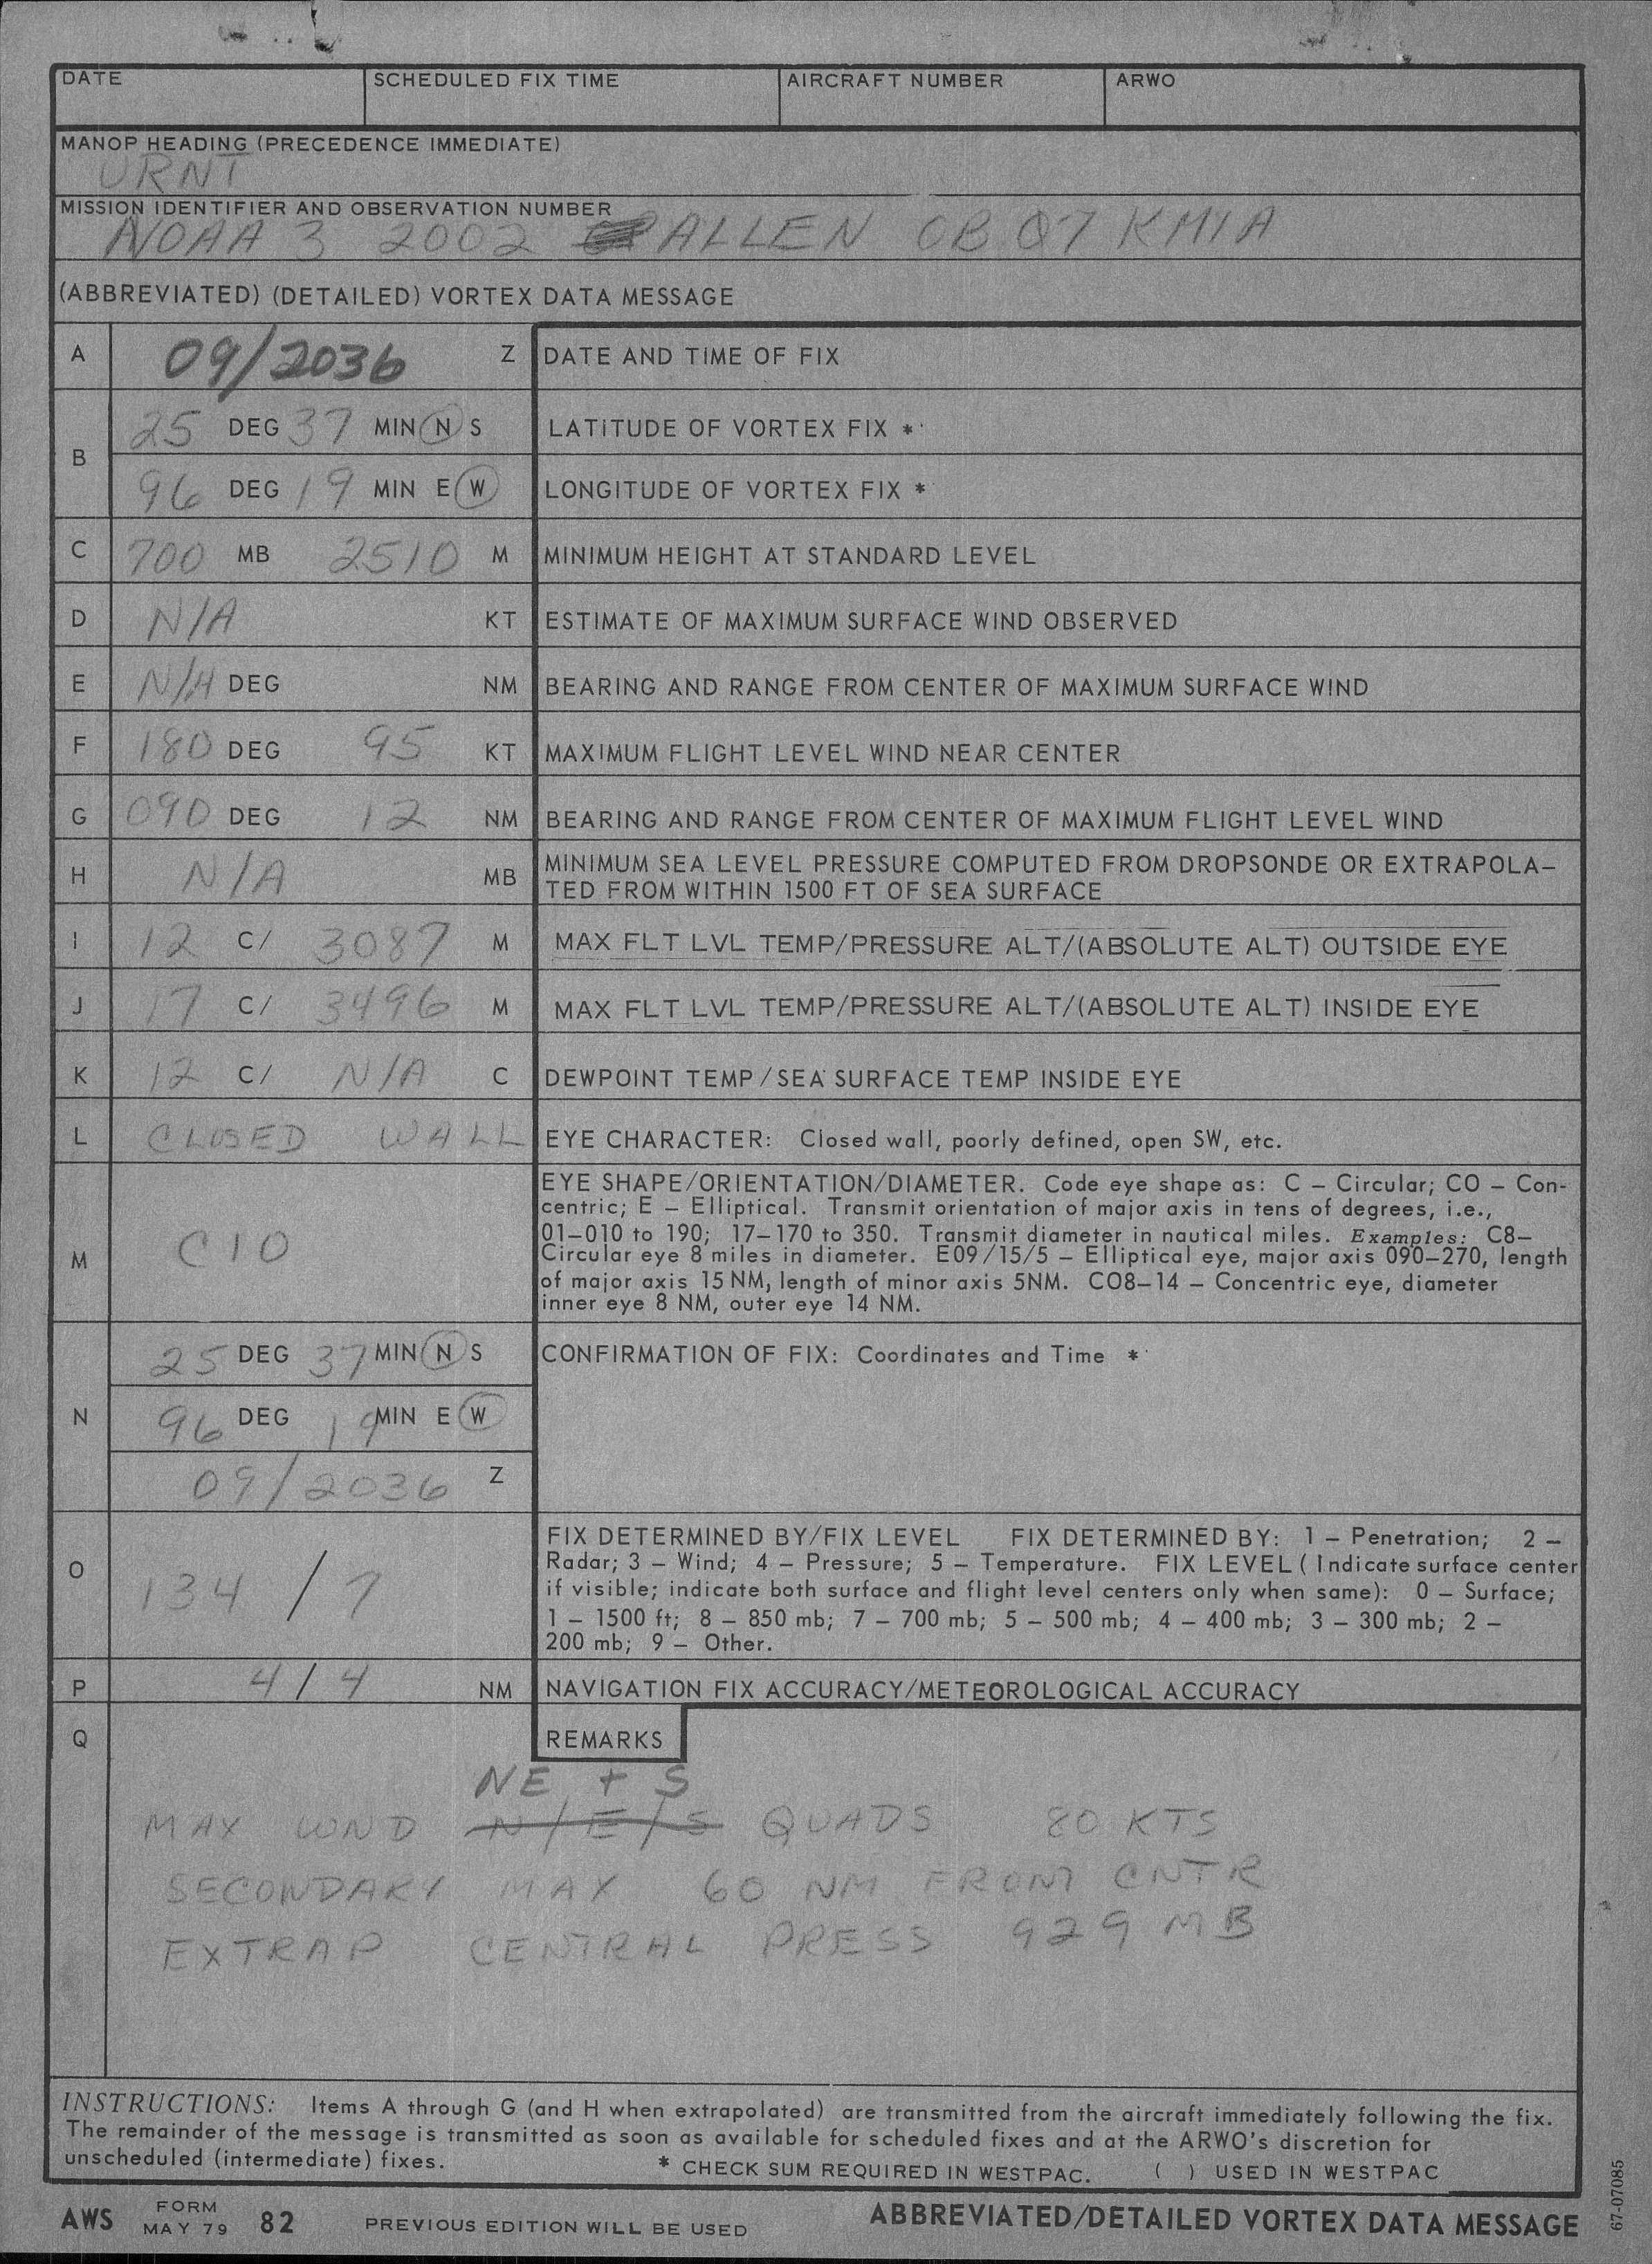 DATE SCHEDULED FIX TIME AIRCRAFT NUMBER ARWO
MANOP HEADING (PRECEDENCE IMMEDIATE)
URNT
MISSION IDENTIFIER AND OBSERVATION NUMBER
NOAA 3 2002 ALLEN OB 07 KMIA
(ABBREVIATED) (DETAILED) VORTEX DATA MESSAGE
A 09/2036 Z DATE AND TIME OF FIX
B 25 DEG 37 MIN N S LATITUDE OF VORTEX FIX *
96 DEG 19 MIN E W LONGITUDE OF VORTEX FIX *
C 700 MB 2510 M MINIMUM HEIGHT AT STANDARD LEVEL
D N/A KT ESTIMATE OF MAXIMUM SURFACE WIND OBSERVED
E N/A DEG NM BEARING AND RANGE FROM CENTER OF MAXIMUM SURFACE WIND
F 180 DEG 95 KT MAXIMUM FLIGHT LEVEL WIND NEAR CENTER
G 090 DEG 12 NM BEARING AND RANGE FROM CENTER OF MAXIMUM FLIGHT LEVEL WIND
H N/A MB MINIMUM SEA LEVEL PRESSURE COMPUTED FROM DROPSONDE OR EXTRAPOLA-
TED FROM WITHIN 1500 FT OF SEA SURFACE
I 12 C/ 3087 M MAX FLT LVL TEMP/PRESSURE ALT/(ABSOLUTE ALT) OUTSIDE EYE
J 17 C/ 3496 M MAX FLT LVL TEMP/PRESSURE ALT/(ABSOLUTE ALT) INSIDE EYE
K 12 C/ N/A C DEWPOINT TEMP/SEA SURFACE TEMP INSIDE EYE
L CLOSED WALL EYE CHARACTER: Closed wall, poorly defined, open SW, etc.
M C10 EYE SHAPE/ORIENTATION/DIAMETER. Code eye shape as: C – Circular; CO – Con-
centric; E – Elliptical. Transmit orientation of major axis in tens of degrees, i.e.,
01–010 to 190; 17–170 to 350. Transmit diameter in nautical miles. Examples: C8–
Circular eye 8 miles in diameter. E09/15/5 – Elliptical eye, major axis 090–270, length
of major axis 15 NM, length of minor axis 5NM. CO8–14 – Concentric eye, diameter
inner eye 8 NM, outer eye 14 NM.
N 25 DEG 37 MIN N S CONFIRMATION OF FIX: Coordinates and Time *
96 DEG 19 MIN E W
09/2036 Z
O 134 / 7 FIX DETERMINED BY/FIX LEVEL FIX DETERMINED BY: 1 – Penetration; 2 –
Radar; 3 – Wind; 4 – Pressure; 5 – Temperature. FIX LEVEL (Indicate surface center
if visible; indicate both surface and flight level centers only when same): 0 – Surface;
1 – 1500 ft; 8 – 850 mb; 7 – 700 mb; 5 – 500 mb; 4 – 400 mb; 3 – 300 mb; 2 –
200 mb; 9 – Other.
P 4 / 4 NM NAVIGATION FIX ACCURACY/METEOROLOGICAL ACCURACY
Q REMARKS
NE + S
MAX WND N/E/S QUADS 80 KTS
SECONDARY MAX 60 NM FROM CNTR
EXTRAP CENTRAL PRESS 929 MB
INSTRUCTIONS: Items A through G (and H when extrapolated) are transmitted from the aircraft immediately following the fix.
The remainder of the message is transmitted as soon as available for scheduled fixes and at the ARWO's discretion for
unscheduled (intermediate) fixes. * CHECK SUM REQUIRED IN WESTPAC. ( ) USED IN WESTPAC
AWS FORM MAY 79 82 PREVIOUS EDITION WILL BE USED ABBREVIATED/DETAILED VORTEX DATA MESSAGE
67-07085